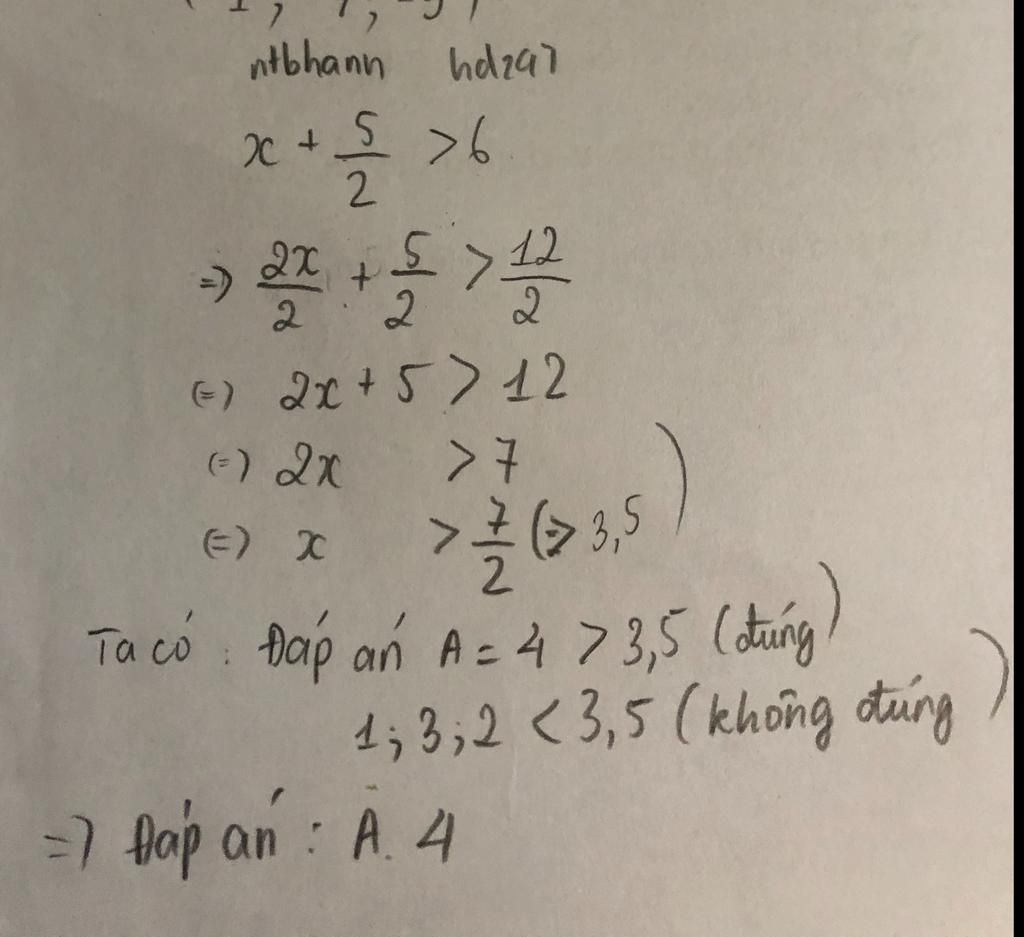 ntbhann hdz97
x + 5/2 > 6
=> 2x/2 + 5/2 > 12/2
(=) 2x + 5 > 12
(=) 2x > 7
(=) x > 7/2 (=> 3,5
Ta có : Đáp án A = 4 > 3,5 (đúng)
1; 3; 2 < 3,5 (không đúng)
=) Đáp án : A. 4